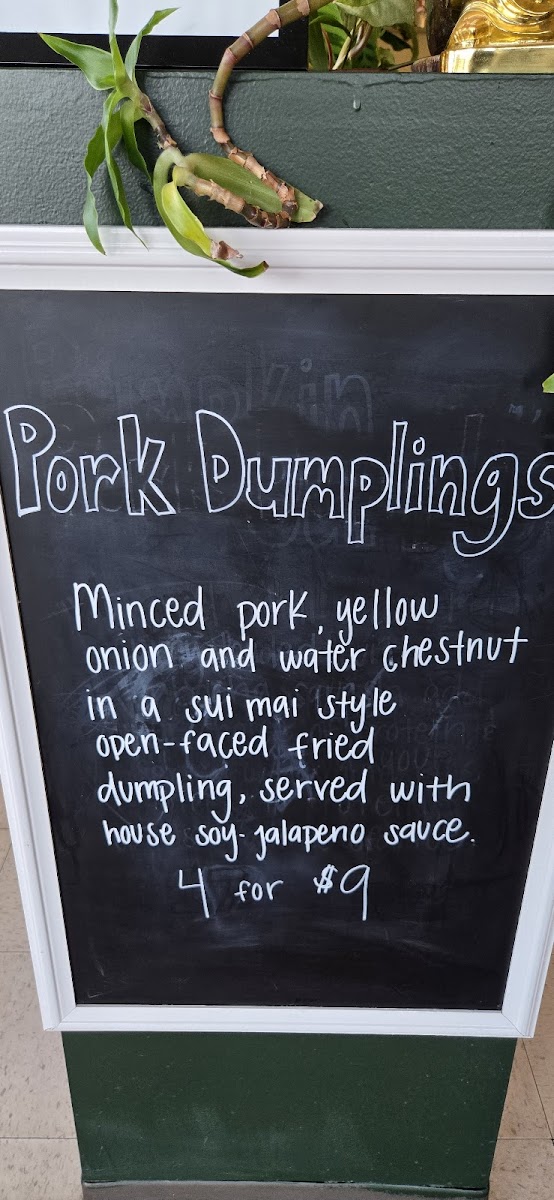 Pork Dumplings
Minced pork, yellow
onion and water chestnut
in a sui mai style
open-faced fried
dumpling, served with
house soy-jalapeno sauce.
4 for $9